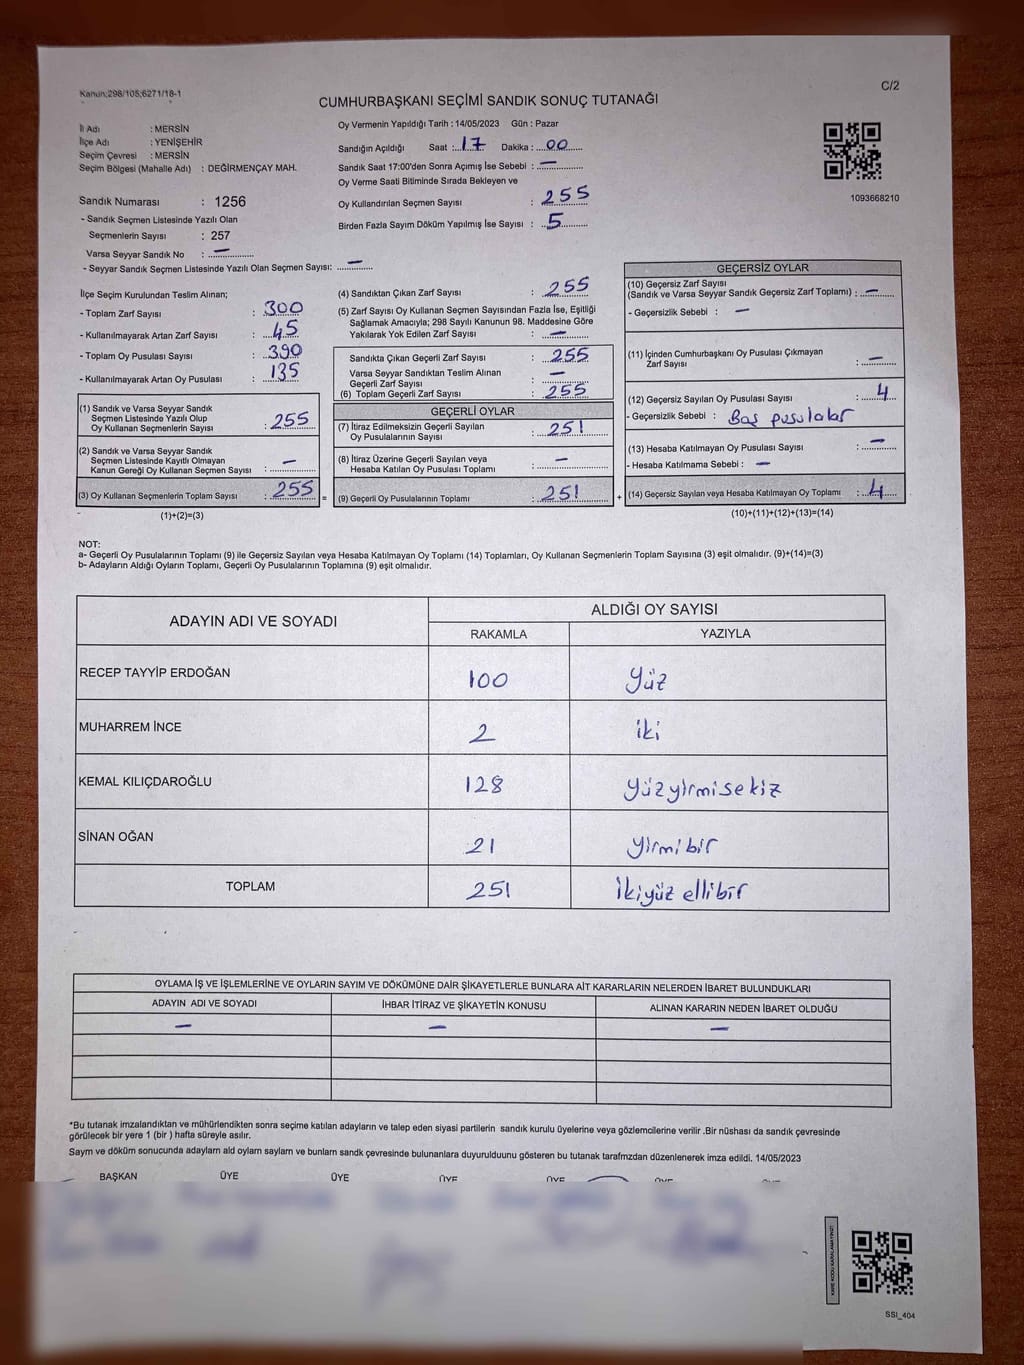 Kanun;298/105;6271/18-1
C/2
CUMHURBAŞKANI SEÇİMİ SANDIK SONUÇ TUTANAĞI
İl Adı : MERSİN
İlçe Adı : YENİŞEHİR
Seçim Çevresi : MERSİN
Seçim Bölgesi (Mahalle Adı) : DEĞİRMENÇAY MAH.
Sandık Numarası : 1256
- Sandık Seçmen Listesinde Yazılı Olan
Seçmenlerin Sayısı : 257
Varsa Seyyar Sandık No : —
- Seyyar Sandık Seçmen Listesinde Yazılı Olan Seçmen Sayısı: —
Oy Vermenin Yapıldığı Tarih : 14/05/2023 Gün : Pazar
Sandığın Açıldığı Saat : 17 Dakika : 00
Sandık Saat 17:00'den Sonra Açımış İse Sebebi : —
Oy Verme Saati Bitiminde Sırada Bekleyen ve
Oy Kullandırılan Seçmen Sayısı : 255
Birden Fazla Sayım Döküm Yapılmış İse Sayısı : 5
1093668210
İlçe Seçim Kurulundan Teslim Alınan;
- Toplam Zarf Sayısı : 300
- Kullanılmayarak Artan Zarf Sayısı : 45
- Toplam Oy Pusulası Sayısı : 390
- Kullanılmayarak Artan Oy Pusulası : 135
(1) Sandık ve Varsa Seyyar Sandık
Seçmen Listesinde Yazılı Olup
Oy Kullanan Seçmenlerin Sayısı : 255
(2) Sandık ve Varsa Seyyar Sandık
Seçmen Listesinde Kayıtlı Olmayan
Kanun Gereği Oy Kullanan Seçmen Sayısı : —
(3) Oy Kullanan Seçmenlerin Toplam Sayısı : 255 =
(1)+(2)=(3)
(4) Sandıktan Çıkan Zarf Sayısı : 255
(5) Zarf Sayısı Oy Kullanan Seçmen Sayısından Fazla İse, Eşitliği
Sağlamak Amacıyla; 298 Sayılı Kanunun 98. Maddesine Göre
Yakılarak Yok Edilen Zarf Sayısı : —
Sandıkta Çıkan Geçerli Zarf Sayısı : 255
Varsa Seyyar Sandıktan Teslim Alınan
Geçerli Zarf Sayısı : —
(6) Toplam Geçerli Zarf Sayısı : 255
GEÇERLİ OYLAR
(7) İtiraz Edilmeksizin Geçerli Sayılan
Oy Pusulalarının Sayısı : 251
(8) İtiraz Üzerine Geçerli Sayılan veya
Hesaba Katılan Oy Pusulası Toplamı : —
(9) Geçerli Oy Pusulalarının Toplamı : 251 +
GEÇERSİZ OYLAR
(10) Geçersiz Zarf Sayısı
(Sandık ve Varsa Seyyar Sandık Geçersiz Zarf Toplamı) : —
- Geçersizlik Sebebi : —
(11) İçinden Cumhurbaşkanı Oy Pusulası Çıkmayan
Zarf Sayısı : —
(12) Geçersiz Sayılan Oy Pusulası Sayısı : 4
- Geçersizlik Sebebi : Boş pusulalar
(13) Hesaba Katılmayan Oy Pusulası Sayısı : —
- Hesaba Katılmama Sebebi : —
(14) Geçersiz Sayılan veya Hesaba Katılmayan Oy Toplamı : 4
(10)+(11)+(12)+(13)=(14)
NOT:
a- Geçerli Oy Pusulalarının Toplamı (9) ile Geçersiz Sayılan veya Hesaba Katılmayan Oy Toplamı (14) Toplamları, Oy Kullanan Seçmenlerin Toplam Sayısına (3) eşit olmalıdır. (9)+(14)=(3)
b- Adayların Aldığı Oyların Toplamı, Geçerli Oy Pusulalarının Toplamına (9) eşit olmalıdır.
ADAYIN ADI VE SOYADI ALDIĞI OY SAYISI
RAKAMLA YAZIYLA
RECEP TAYYİP ERDOĞAN 100 Yüz
MUHARREM İNCE 2 iki
KEMAL KILIÇDAROĞLU 128 yüzyirmisekiz
SİNAN OĞAN 21 yirmibir
TOPLAM 251 İkiyüz ellibir
OYLAMA İŞ VE İŞLEMLERİNE VE OYLARIN SAYIM VE DÖKÜMÜNE DAİR ŞİKAYETLERLE BUNLARA AİT KARARLARIN NELERDEN İBARET BULUNDUKLARI
ADAYIN ADI VE SOYADI İHBAR İTİRAZ VE ŞİKAYETİN KONUSU ALINAN KARARIN NEDEN İBARET OLDUĞU
— — —
*Bu tutanak imzalandıktan ve mühürlendikten sonra seçime katılan adayların ve talep eden siyasi partilerin sandık kurulu üyelerine veya gözlemcilerine verilir .Bir nüshası da sandık çevresinde
görülecek bir yere 1 (bir ) hafta süreyle asılır.
Saym ve döküm sonucunda adaylarn ald oylarn saylarn ve bunların sandk çevresinde bulunanlara duyurulduunu gösteren bu tutanak tarafmzdan düzenlenerek imza edildi. 14/05/2023
BAŞKAN ÜYE ÜYE ÜYE ÜYE ÜYE
SSI_404